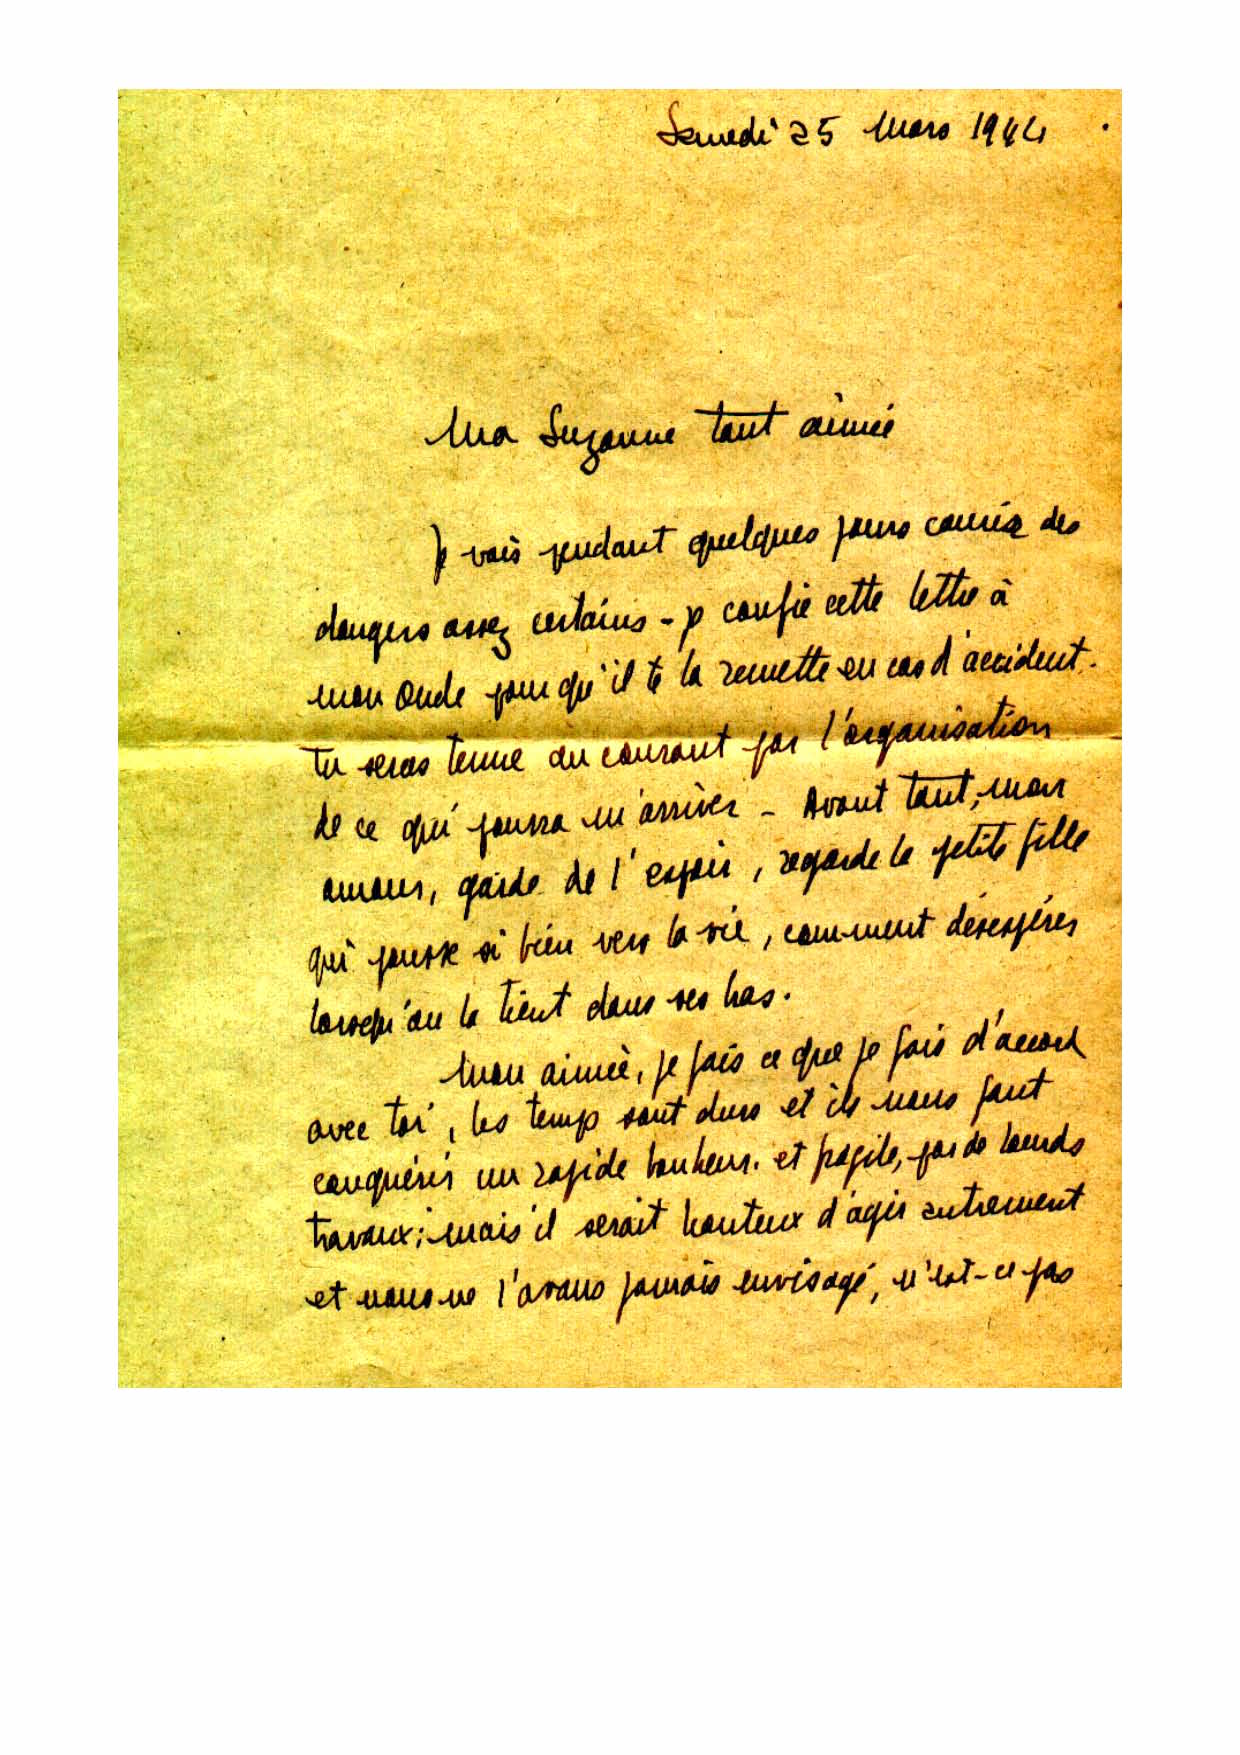 Samedi 25 Mars 1944
Ma Suzanne tant aimée
Je vais pendant quelques jours courir des
dangers assez certains - je confie cette lettre à
mon oncle pour qu'il te la remette en cas d'accident.
Tu seras tenue au courant par l'organisation
de ce qui pourra m'arriver - Avant tant, mon
amour, garde de l'espoir, regarde la petite fille
qui pousse si bien vers la vie, comment désespérer
lorsqu'on la tient dans ses bras.
Mon aimée, je fais ce que je fais d'accord
avec toi, les temps sont durs et ils nous faut
conquérir un rapide bonheur. et fragile, par de lourds
travaux; mais il serait honteux d'agir autrement
et nous ne l'avons jamais envisagé, n'est-ce pas